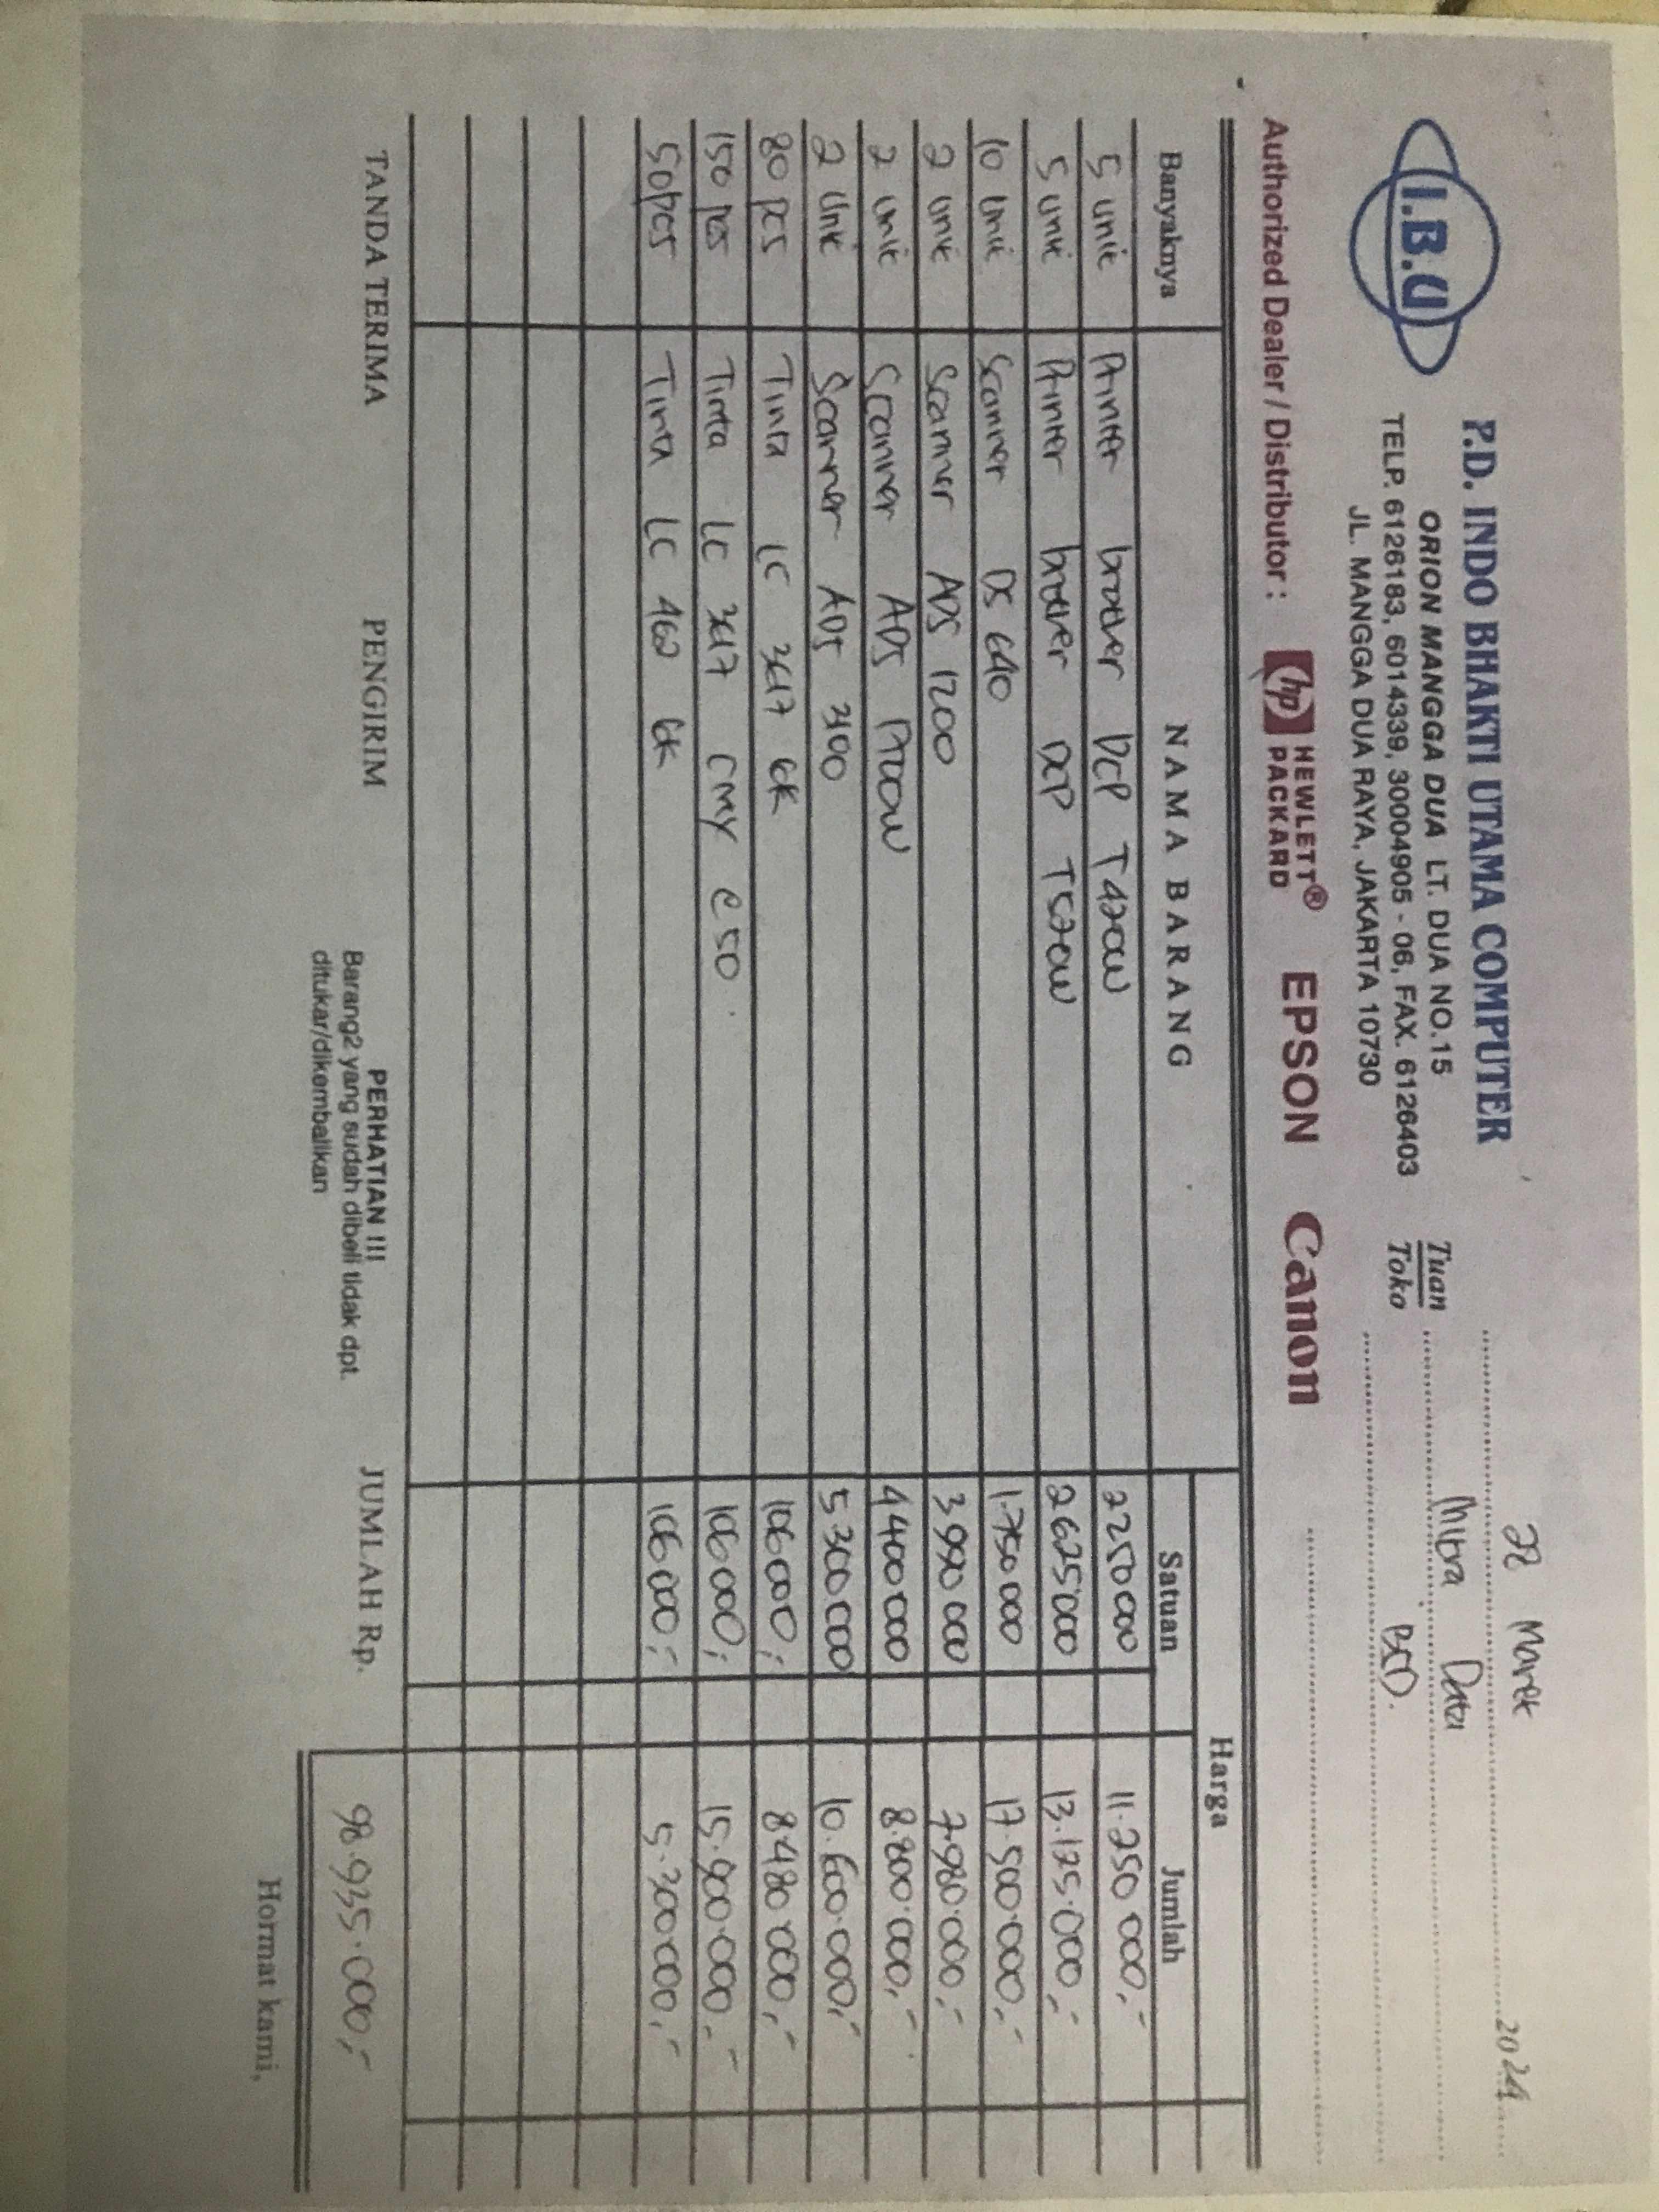 I.B.U
P.D. INDO BHAKTI UTAMA COMPUTER
ORION MANGGA DUA LT. DUA NO.15
TELP. 6126183, 6014339, 30004905 - 06, FAX. 6126403
JL. MANGGA DUA RAYA, JAKARTA 10730
28 Maret 2024
Tuan Mitra Data
Toko BCD.
Authorized Dealer / Distributor : hp HEWLETT® PACKARD EPSON Canon
Banyaknya NAMA BARANG Harga
Satuan Jumlah
5 unit Printer brother DCP T420W 2250000 11.250 000,-
5 unit Printer brother DCP T520W 2625000 13.125.000,-
10 unit Scanner DS 640 1.750 000 17.500.000,-
2 unit Scanner ADS 1200 3990 000 7.980.000,-
2 unit Scanner ADS 4400 000 8.800.000,-
2 unit Scanner ADS 3100 5.300 000 10.600.000,-
80 pcs Tinta LC 3617 BK 106000,- 8.480.000,-
150 pcs Tinta LC 3617 CMY @ 50. 106000,- 15.900.000,-
50 pcs Tinta LC 462 BK 106000,- 5.300.000,-
TANDA TERIMA PENGIRIM PERHATIAN !!! JUMLAH Rp. 98.935.000,-
Barang2 yang sudah dibeli tidak dpt.
ditukar/dikembalikan
Hormat kami,